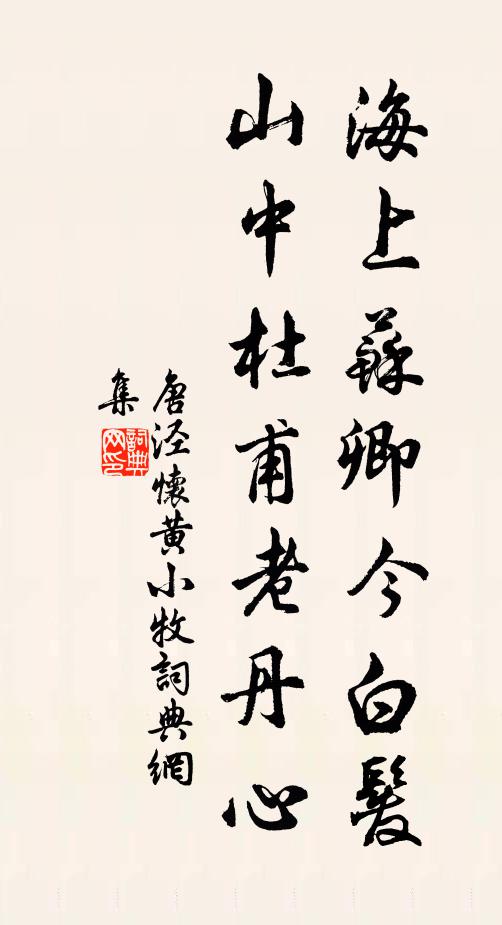 海上蘇卿今白髮
山中杜甫老丹心
唐泾懷黄小牧詞典網
集
詞典網印